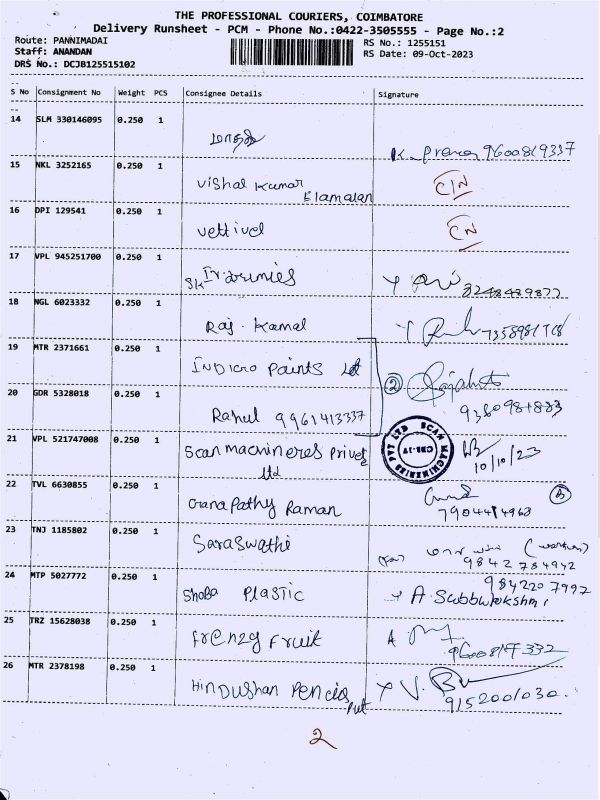 THE PROFESSIONAL COURIERS, COIMBATORE
Delivery Runsheet - PCM - Phone No.:0422-3505555 - Page No.:2
Route: PANNIMADAI
RS No.: 1255151
Staff: ANANDAN
RS Date: 09-Oct-2023
DRS No.: DCJB125515102
S No Consignment No Weight PCS Consignee Details Signature
14 SLM 330146095 0.250 1
9600819337
15 NKL 3252165 0.250 1 Vishal Kumar
Elamalan
16 DPI 129541 0.250 1 vettivel
17 VPL 945251700 0.250 1 SK
8248489877
18 NGL 6023332 0.250 1 Raj. Kamal
19 MTR 2371661 0.250 1 INDIGO Paints
2
20 GDR 5328018 0.250 1 Rahul 9961413337
21 VPL 521747008 0.250 1 Scan machineres Privet
ltd
SCAN MACHINERIES PVT LTD
10/10/23
22 TVL 6630855 0.250 1 Ganapathy Raman
23 TNJ 1185802 0.250 1 Saraswathi
9842784942
24 MTP 5027772 0.250 1 Shoba PlasTic
9842207997
A. Subbulakshmi
25 TRZ 15628038 0.250 1 frenzg Fruit
26 MTR 2378198 0.250 1 Hindushan Pencils
Pvt
9152001030.
2